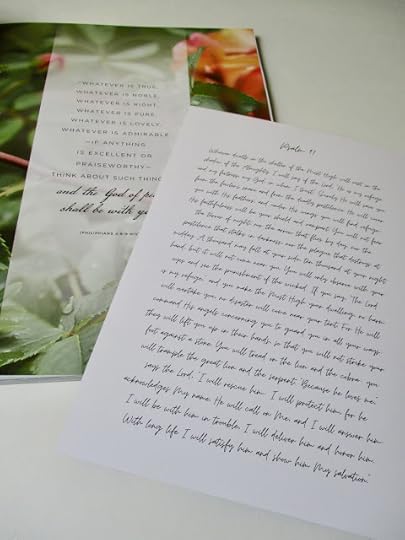 "WHATEVER IS TRUE,
WHATEVER IS NOBLE,
WHATEVER IS RIGHT,
WHATEVER IS PURE,
WHATEVER IS LOVELY,
WHATEVER IS ADMIRABLE
—IF ANYTHING
IS EXCELLENT OR
PRAISEWORTHY—
THINK ABOUT SUCH THING
and the God of pe
shall be with y
(PHILIPPIANS 4:8-9 NIV
Psalm 91
Whoever dwells in the shelter of the Most High will rest in the
shadow of the Almighty. I will say of the Lord, "He is my refuge
and my fortress, my God, in whom I trust." Surely He will save you
from the fowler's snare and from the deadly pestilence. He will cover
you with His feathers, and under His wings you will find refuge;
His faithfulness will be your shield and rampart. You will not fear
the terror of night, nor the arrow that flies by day, nor the
pestilence that stalks in darkness, nor the plague that destroys at
midday. A thousand may fall at your side, ten thousand at your right
hand, but it will not come near you. You will only observe with your
eyes and see the punishment of the wicked. If you say, "The Lord
is my refuge," and you make the Most High your dwelling, no harm
will overtake you, no disaster will come near your tent. For He will
command His angels concerning you to guard you in all your ways;
they will lift you up in their hands, so that you will not strike your
foot against a stone. You will tread on the lion and the cobra; you
will trample the great lion and the serpent. "Because he loves me,"
says the Lord, "I will rescue him; I will protect him, for he
acknowledges My name. He will call on Me, and I will answer him;
I will be with him in trouble, I will deliver him and honor him.
With long life I will satisfy him and show him My salvation."